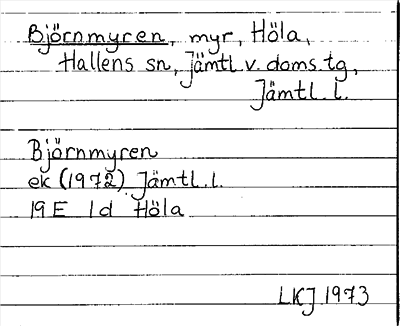 Björnmyren, myr, Höla,
Hallens sn, Jämtl.v.doms.tg,
Jämtl.l.
Björnmyren
ek (1972) Jämtl.l.
19E 1d Höla
LKJ 1973